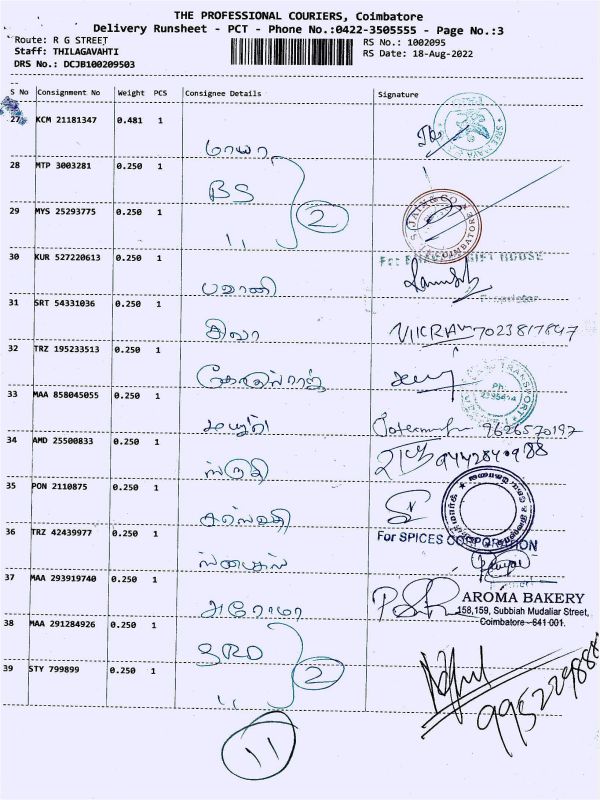 THE PROFESSIONAL COURIERS, Coimbatore
Delivery Runsheet - PCT - Phone No.:0422-3505555 - Page No.:3
Route: R G STREET RS No.: 1002095
Staff: THILAGAVAHTI RS Date: 18-Aug-2022
DRS No.: DCJB100209503
S No Consignment No Weight PCS Consignee Details Signature
27 KCM 21181347 0.481 1 மாயா
28 MTP 3003281 0.250 1 BS 2
29 MYS 25293775 0.250 1 "
JAIN & CO
COIMBATORE
30 KUR 527220613 0.250 1 பவானி
31 SRT 54331036 0.250 1 VIKRAM 7023817847
32 TRZ 195233513 0.250 1
TRANSPORT
Ph:
33 MAA 858045055 0.250 1 9626570197
34 AMD 25500833 0.250 1 ஸ்ருதி
35 PON 2110875 0.250 1
36 TRZ 42439977 0.250 1 ஸ்பைஸ்
For SPICES CORPORATION
37 MAA 293919740 0.250 1 அரோமா
AROMA BAKERY
158,159, Subbiah Mudaliar Street,
Coimbatore - 641 001.
38 MAA 291284926 0.250 1 SRD 2
39 STY 799899 0.250 1 "
11